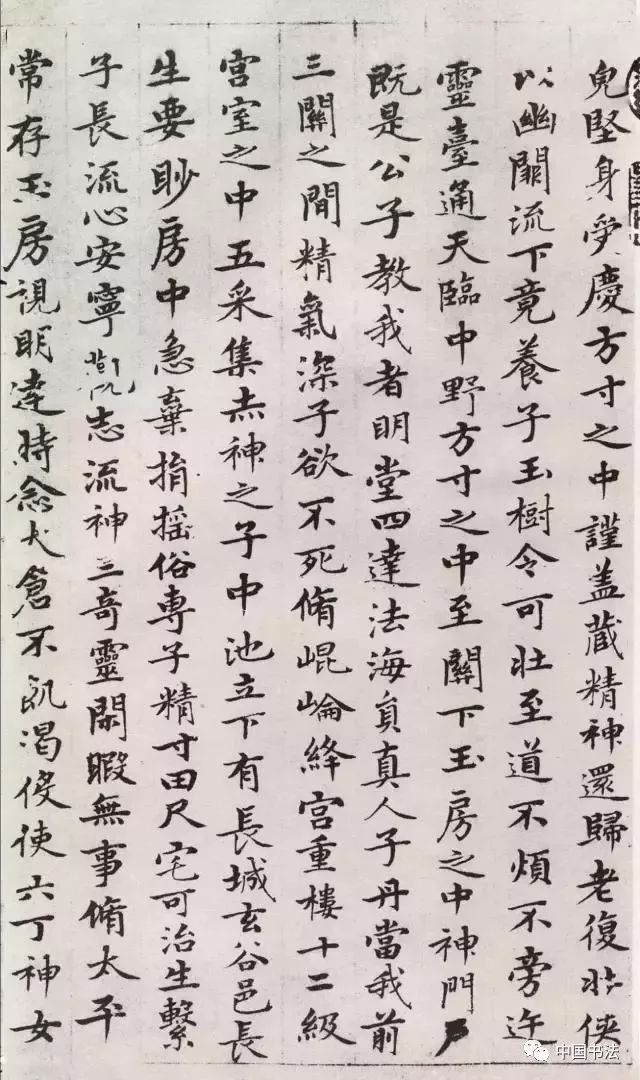 兒堅身受慶方寸之中謹盖藏精神還歸老復壯俠
以幽闕流下竟養子玉樹令可壯至道不煩不旁迕
靈臺通天臨中野方寸之中至關下玉房之中神門戶
既是公子教我者明堂四達法海員真人子丹當我前
三關之間精氣深子欲不死脩崐崘絳宮重樓十二級
宮室之中五采集赤神之子中池立下有長城玄谷邑長
生要眇房中急棄捐搖俗専子精寸田尺宅可治生繫
子長流心安寧觀志流神三奇靈閑暇無事脩太平
常存玉房視明達時念大倉不飢渴役使六丁神女
中国书法